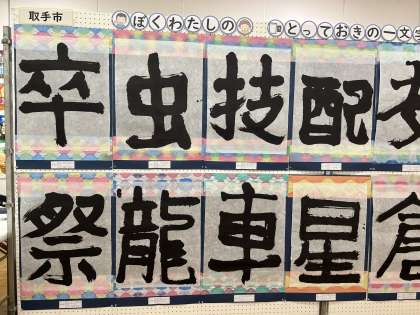 取手市
ぼくわたしの
とっておきの一文字
卒 虫 技 配
祭 龍 車 星 倉